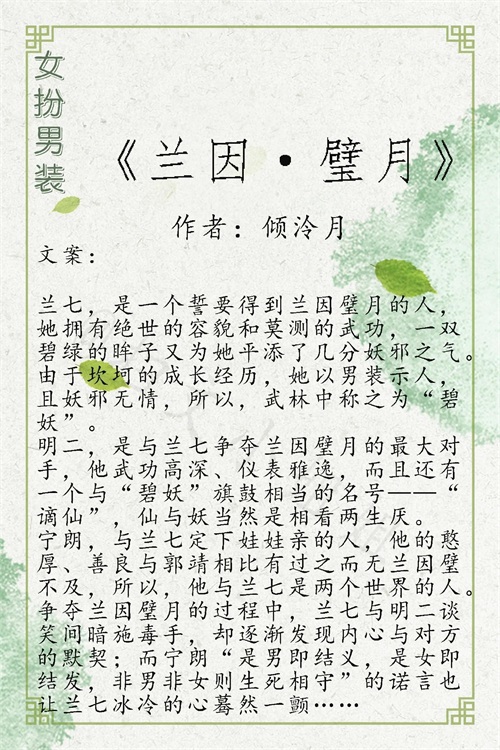 女扮男装
《兰因·璧月》
作者：倾泠月
文案：
兰七，是一个誓要得到兰因璧月的人，
她拥有绝世的容貌和莫测的武功，一双
碧绿的眸子又为她平添了几分妖邪之气。
由于坎坷的成长经历，她以男装示人，
且妖邪无情，所以，武林中称之为“碧
妖”。
明二，是与兰七争夺兰因璧月的最大对
手，他武功高深、仪表雅逸，而且还有
一个与“碧妖”旗鼓相当的名号——“
谪仙”，仙与妖当然是相看两生厌。
宁朗，与兰七定下娃娃亲的人，他的憨
厚、善良与郭靖相比有过之而无兰因璧
不及，所以，他与兰七是两个世界的人。
争夺兰因璧月的过程中，兰七与明二谈
笑间暗施毒手，却逐渐发现内心与对方
的默契；而宁朗“是男即结义，是女即
结发，非男非女则生死相守”的诺言也
让兰七冰冷的心蓦然一颤……